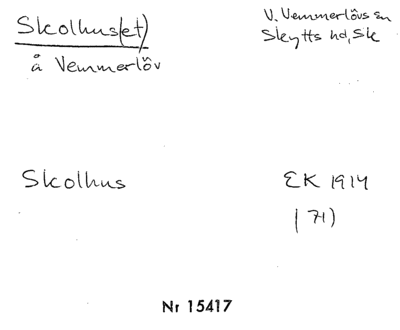 Skolhus(et)
å Vemmerlöv
V. Vemmerlövs sn
Skytts hd, Sk
Skolhus
EK 1914
(71)
Nr 15417